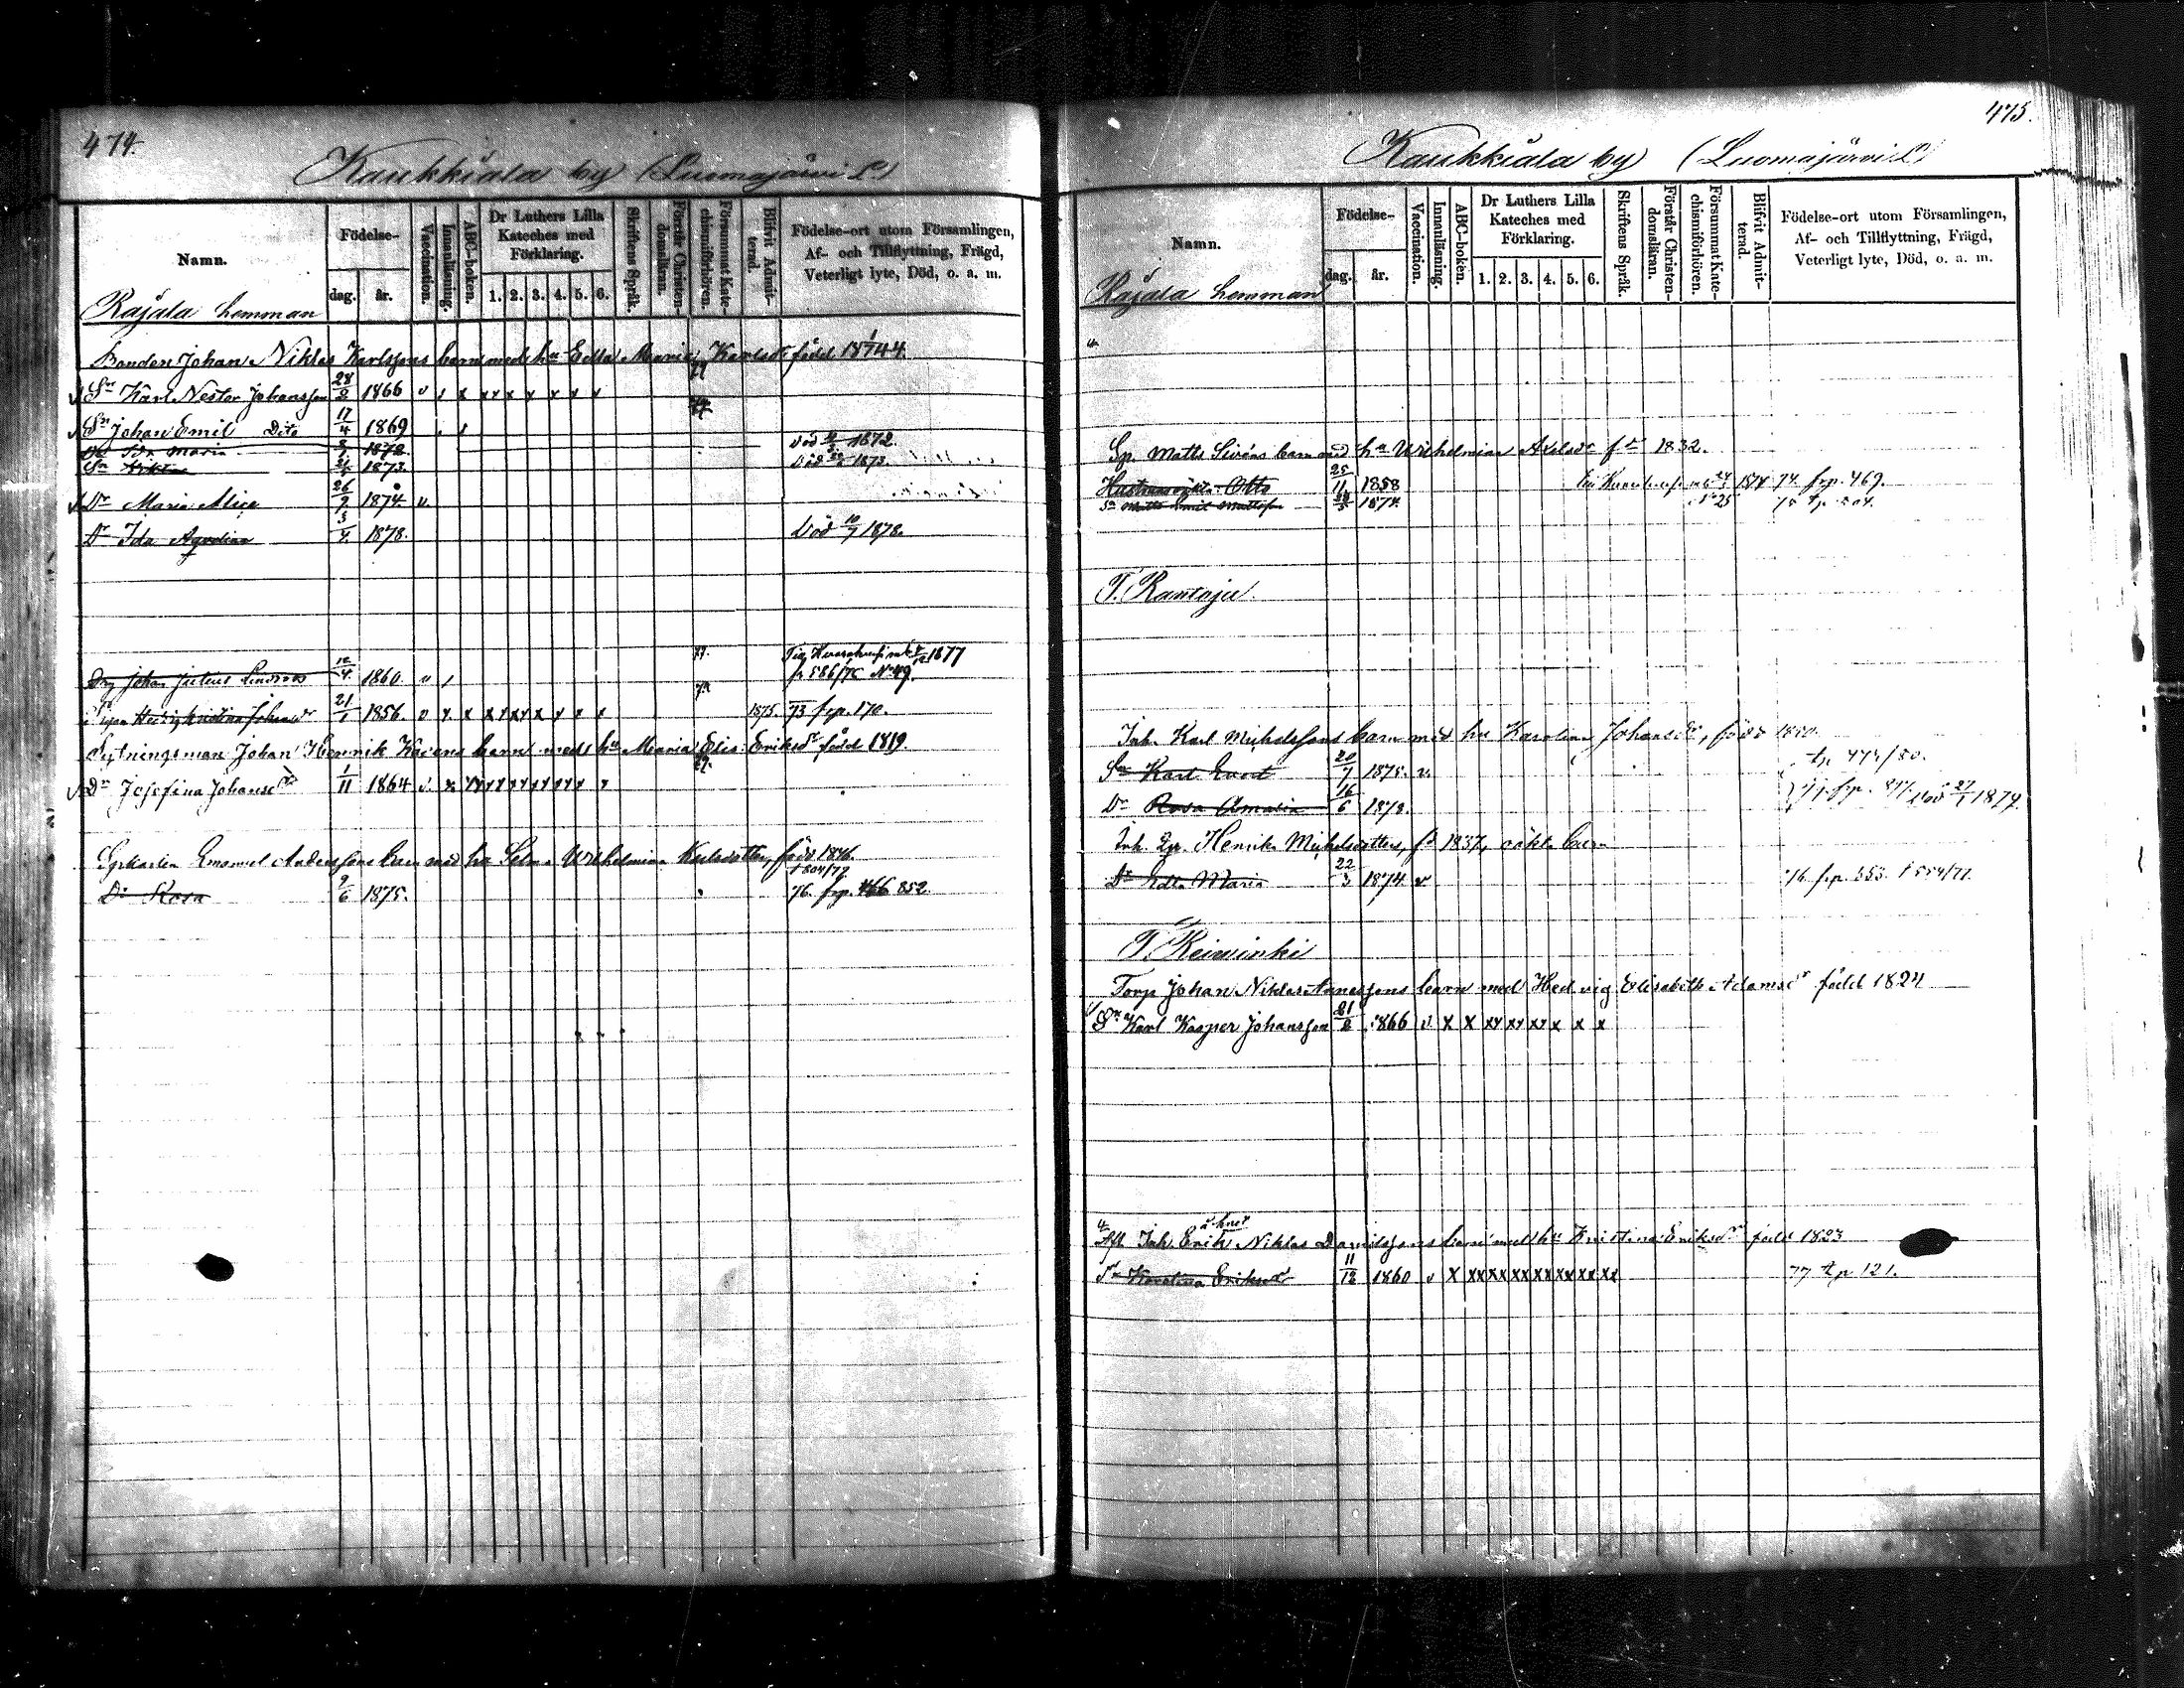 474.
Kaukkiala by (Luomajärvi L)
Namn.
Födelse-
dag. år.
Vaccination.
Innanläsning.
ABC-boken.
Dr Luthers Lilla Kateches med Förklaring.
1. 2. 3. 4. 5. 6.
Skriftens Språk.
Förstår Christen-domsläran.
Försummat Kate-chismiförhören.
Blifvit Admit-terad.
Födelse-ort utom Församlingen, Af- och Tillflyttning, Frägd, Veterligt lyte, Död, o. a. m.
Rajala hemman
Bonden Johan Niklas Karlssons barn med hu Edla Maria Karlsdr född 1844.
Sn Karl Nestor Johansson 28/2 1866 v x x x x x x x x
Sn Johan Emil Dito 17/4 1869
Dr Ida Maria 1872. Död 1872.
Sn 1873. Död 1873.
Dr Maria Alice 26/9 1874. v.
Dr Ida 3/4 1878. Död 10/7 1878.
Drg Johan Julius 12/4 1860 v 1877
No 49.
Pigan Hedvig Kristina Johansdr 21/1 1856. v x x x x x x x x x 1875. 73 frp. 170.
Sytningsman Johan Henrik barn med hu Maria Elis: Eriksdr född 1819.
Dr Josefina Johansdr 1/11 1864 v x x x x x x x x x
Emanuel Anderssons barn med hu Selma Wilhelmina Karlsdotter, född 1846.
t 804/77
Dr Rosa 9/6 1875. 76. frp. 466 852
475.
Kaukkiala by (Luomajärvi L)
Namn.
Födelse-
dag. år.
Vaccination.
Innanläsning.
ABC-boken.
Dr Luthers Lilla Kateches med Förklaring.
1. 2. 3. 4. 5. 6.
Skriftens Språk.
Förstår Christen-domsläran.
Försummat Kate-chismiförhören.
Blifvit Admit-terad.
Födelse-ort utom Församlingen, Af- och Tillflyttning, Frägd, Veterligt lyte, Död, o. a. m.
Rajala hemman
Sp. Matts Siréns barn med hu Wilhelmina Axelsdr fd 1832.
Hustruns oäkta Otto 25/11 1858 1874 74. frp. 469.
Sn Matts Emil Mattsson 1874.
T. Rantoja
Inh. Karl Michelssons barn med hu Karolina Johansdr, född
tp 474/80.
Sn Karl Evert 20/7 1875. v.
Dr Rosa Amalia 16/6 1878. Död 27/1 1879.
Inh. Henrika Michelsdotters, fd 1837, oäkta barn
Dr Edla Maria 22/3 1874. v 76. frp. 553. t 554/77.
T. Reiwinki
Torp Johan Niklas barn med Hedvig Elisabeth Adamsdr född 1824
Sn Karl Kasper Johansson 1866 v x x xx xx xx x x x
Inh. Erik Niklas Danielssons barn med hu Kristina Eriksdr född 1823
Dr Karolina Eriksdr 11/12 1860 v x xx xx xx xx xx xx xx
77 tp 121.